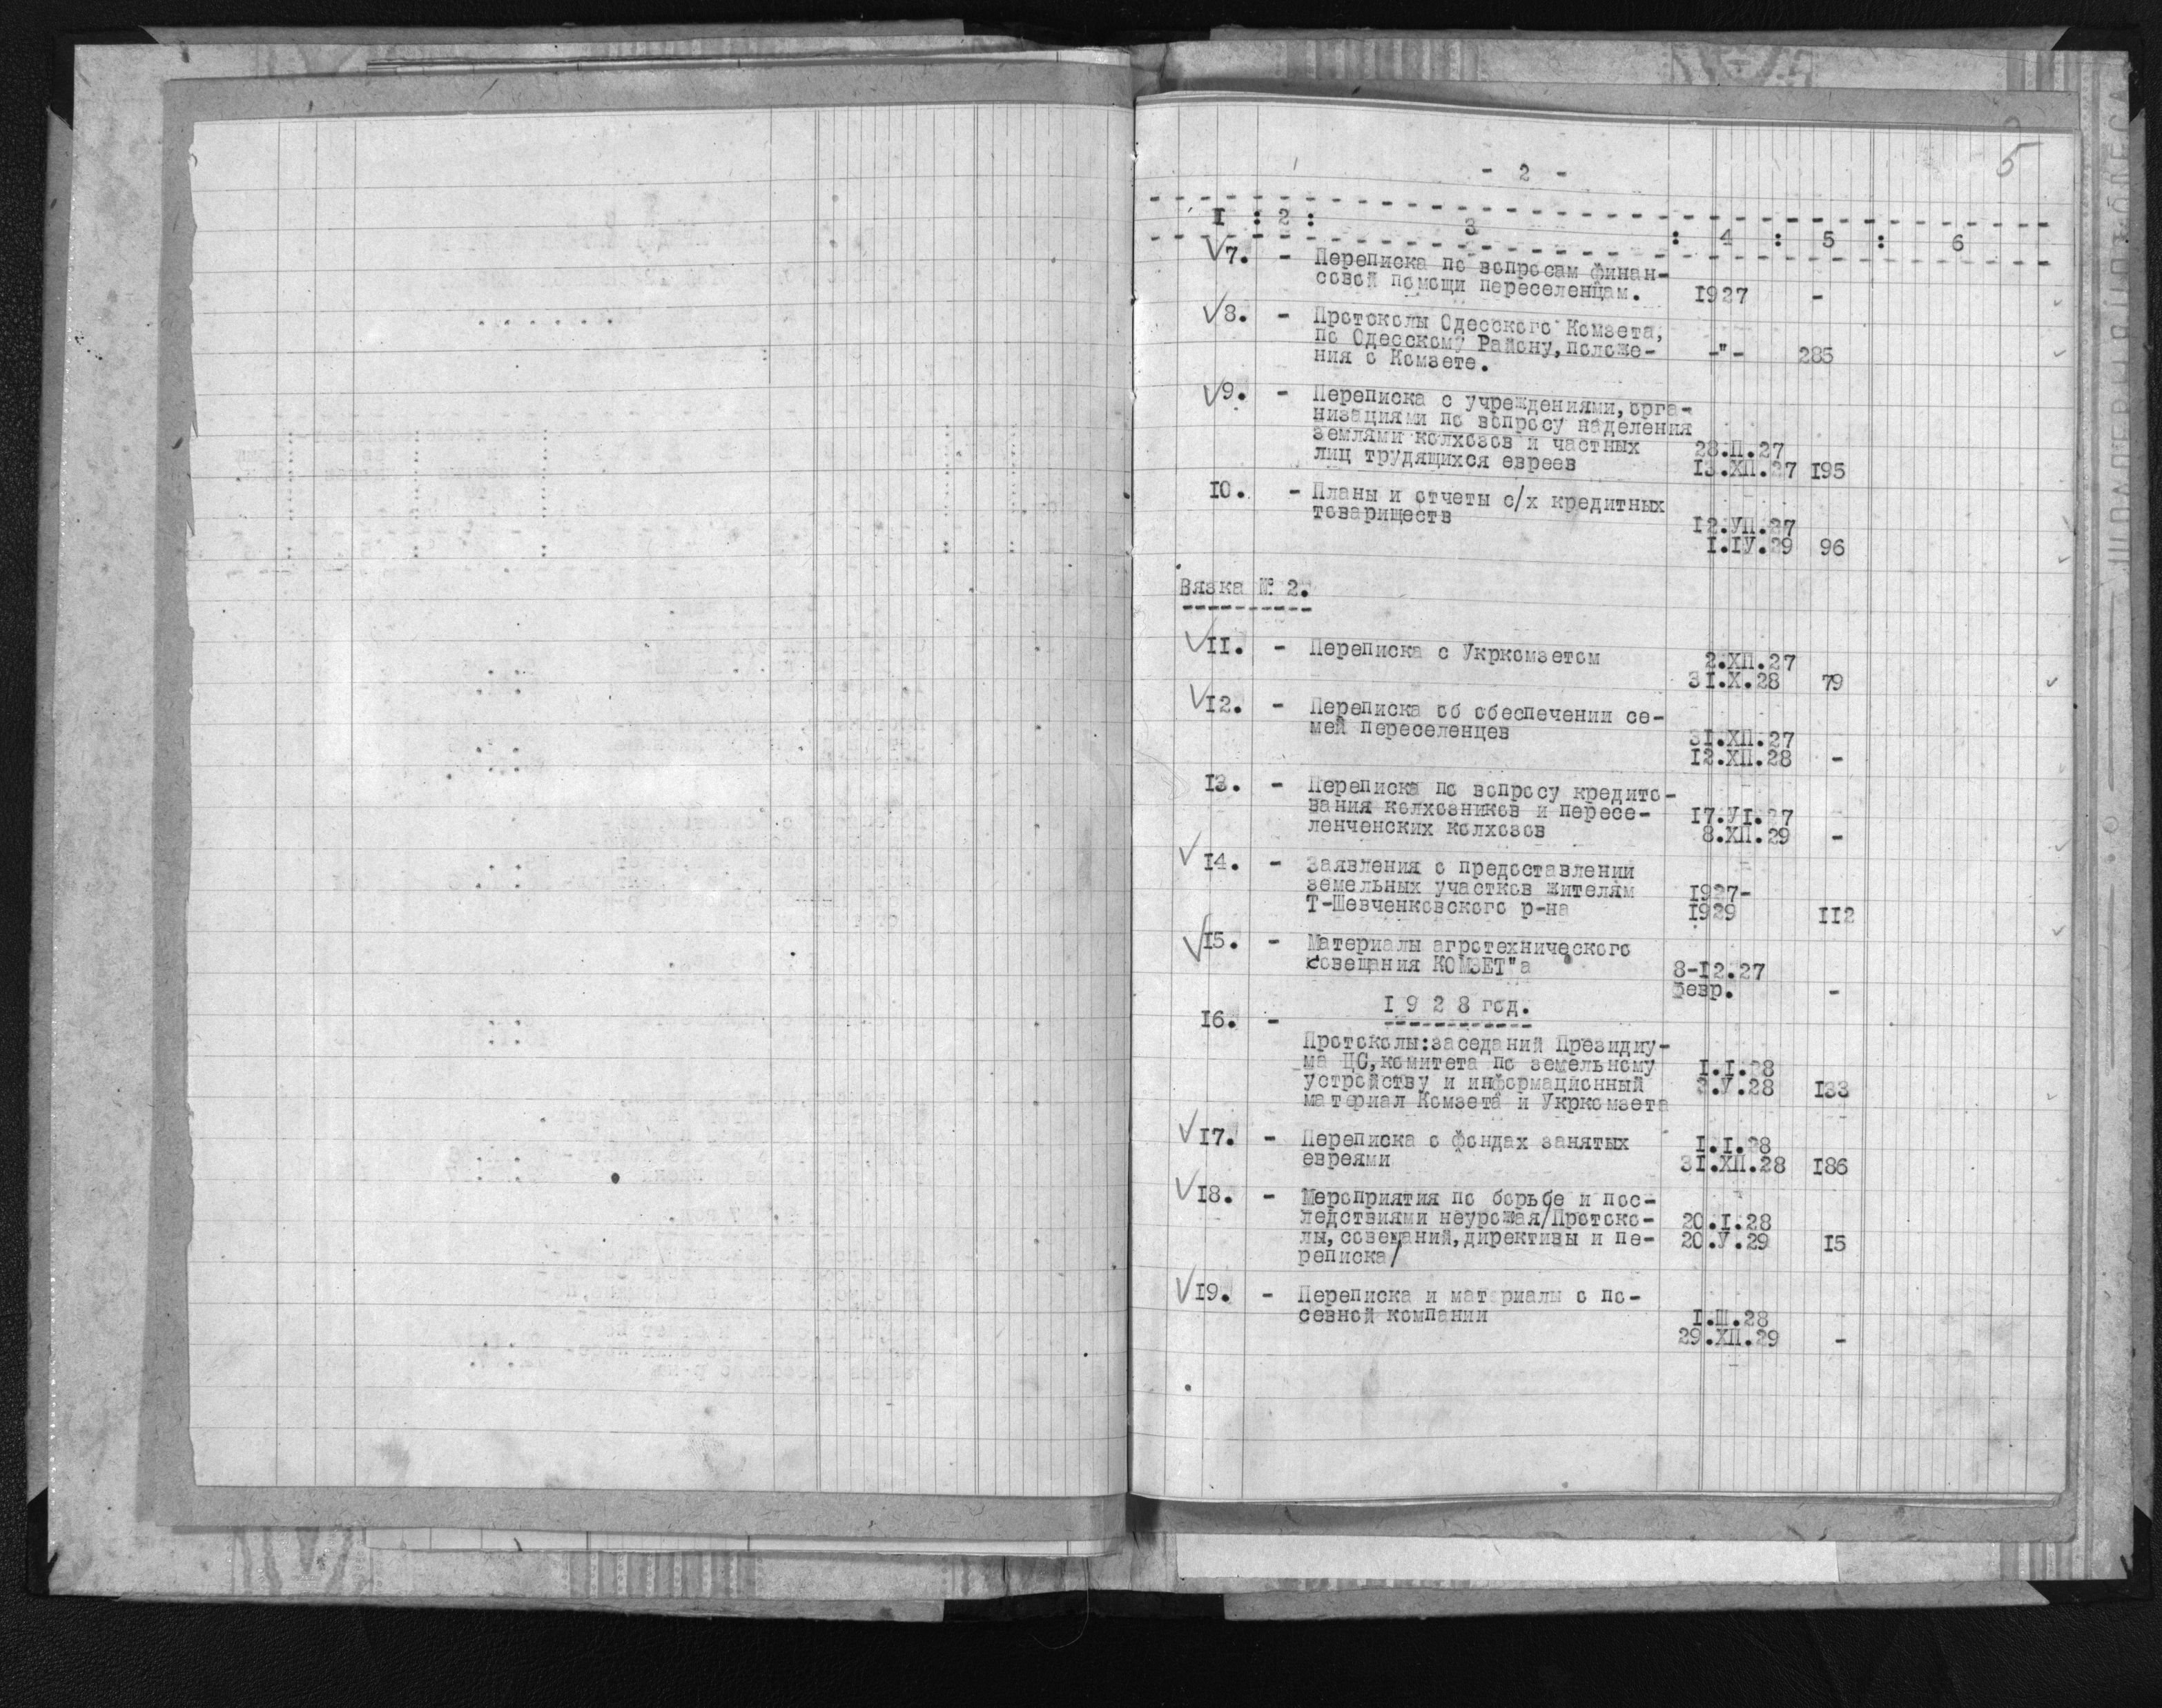 5
- 2 -
I : 2 : 3 : 4 : 5 : 6
7. - Переписка по вопросам финан-
совой помощи переселенцам. 1927 -
8. - Протоколы Одесского Комзета,
по Одесскому Району, положе- -"- 285
ния о Комзете.
9. - Переписка с учреждениями, орга-
низациями по вопросу наделения
землями колхозов и частных 28.П.27
лиц трудящихся евреев 13.ХП.27 195
10. - Планы и отчеты с/х кредитных
товариществ 12.УП.27
I.IУ.29 96
Вязка № 2.
II. - Переписка с Укркомзетом 2.ХП.27
31.Х.28 79
12. - Переписка об обеспечении се-
мей переселенцев 31.ХП.27
12.ХП.28 -
13. - Переписка по вопросу кредито-
вания колхозников и пересе- 17.УI.27
ленченских колхозов 8.ХП.29 -
14. - Заявления о предоставлении
земельных участков жителям 1927-
Т-Шевченковского р-на 1929 112
15. - Материалы агротехнического
совещания КОМЗЕТ"а 8-12.27
февр. -
1 9 2 8 год.
16. -
Протоколы:заседаний Президиу-
ма ЦС, комитета по земельному I.I.28
устройству и информационный 3.У.28 133
материал Комзета и Укркомзета
17. - Переписка о фондах занятых I.I.28
евреями 31.ХП.28 186
18. - Мероприятия по борьбе и пос-
ледствиями неурожая/Протоко- 20.I.28
лы, совещаний, директивы и пе- 20.У.29 15
реписка/
19. - Переписка и материалы о по-
севной компании I.Ш.28
29.ХП.29 -